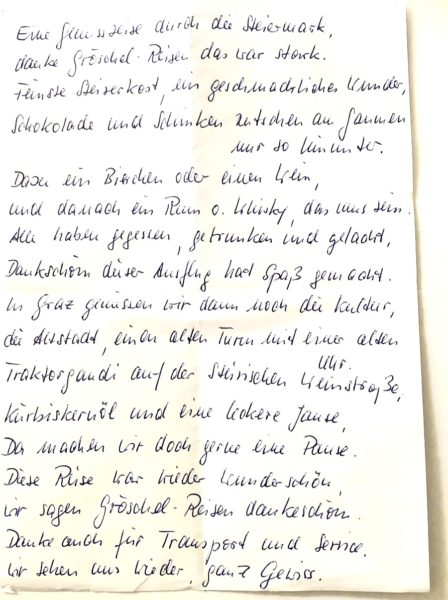 Eine Genussreise durch die Steiermark,
danke Gröschel-Reisen das war stark.
Feinste Steirerkost, ein geschmackliches Wunder,
Schokolade und Schinken rutschen am Gaumen
nur so hinunter.
Dazu ein Bierchen oder einen Wein,
und danach ein Rum o. Whisky, das muss sein.
Alle haben gegessen, getrunken und gelacht,
Dankschön dieser Ausflug hat Spaß gemacht.
In Graz genossen wir dann noch die Kultur,
die Altstadt, einen alten Turm mit einer alten
Uhr.
Traktorgaudi auf der Steirischen Weinstraße,
Kürbiskernöl und eine leckere Jause,
Da machen wir doch gerne eine Pause.
Diese Reise war wieder wunderschön,
wir sagen Gröschel-Reisen dankeschön.
Danke auch für Transport und Service,
wir sehen uns wieder, ganz Gewiss.